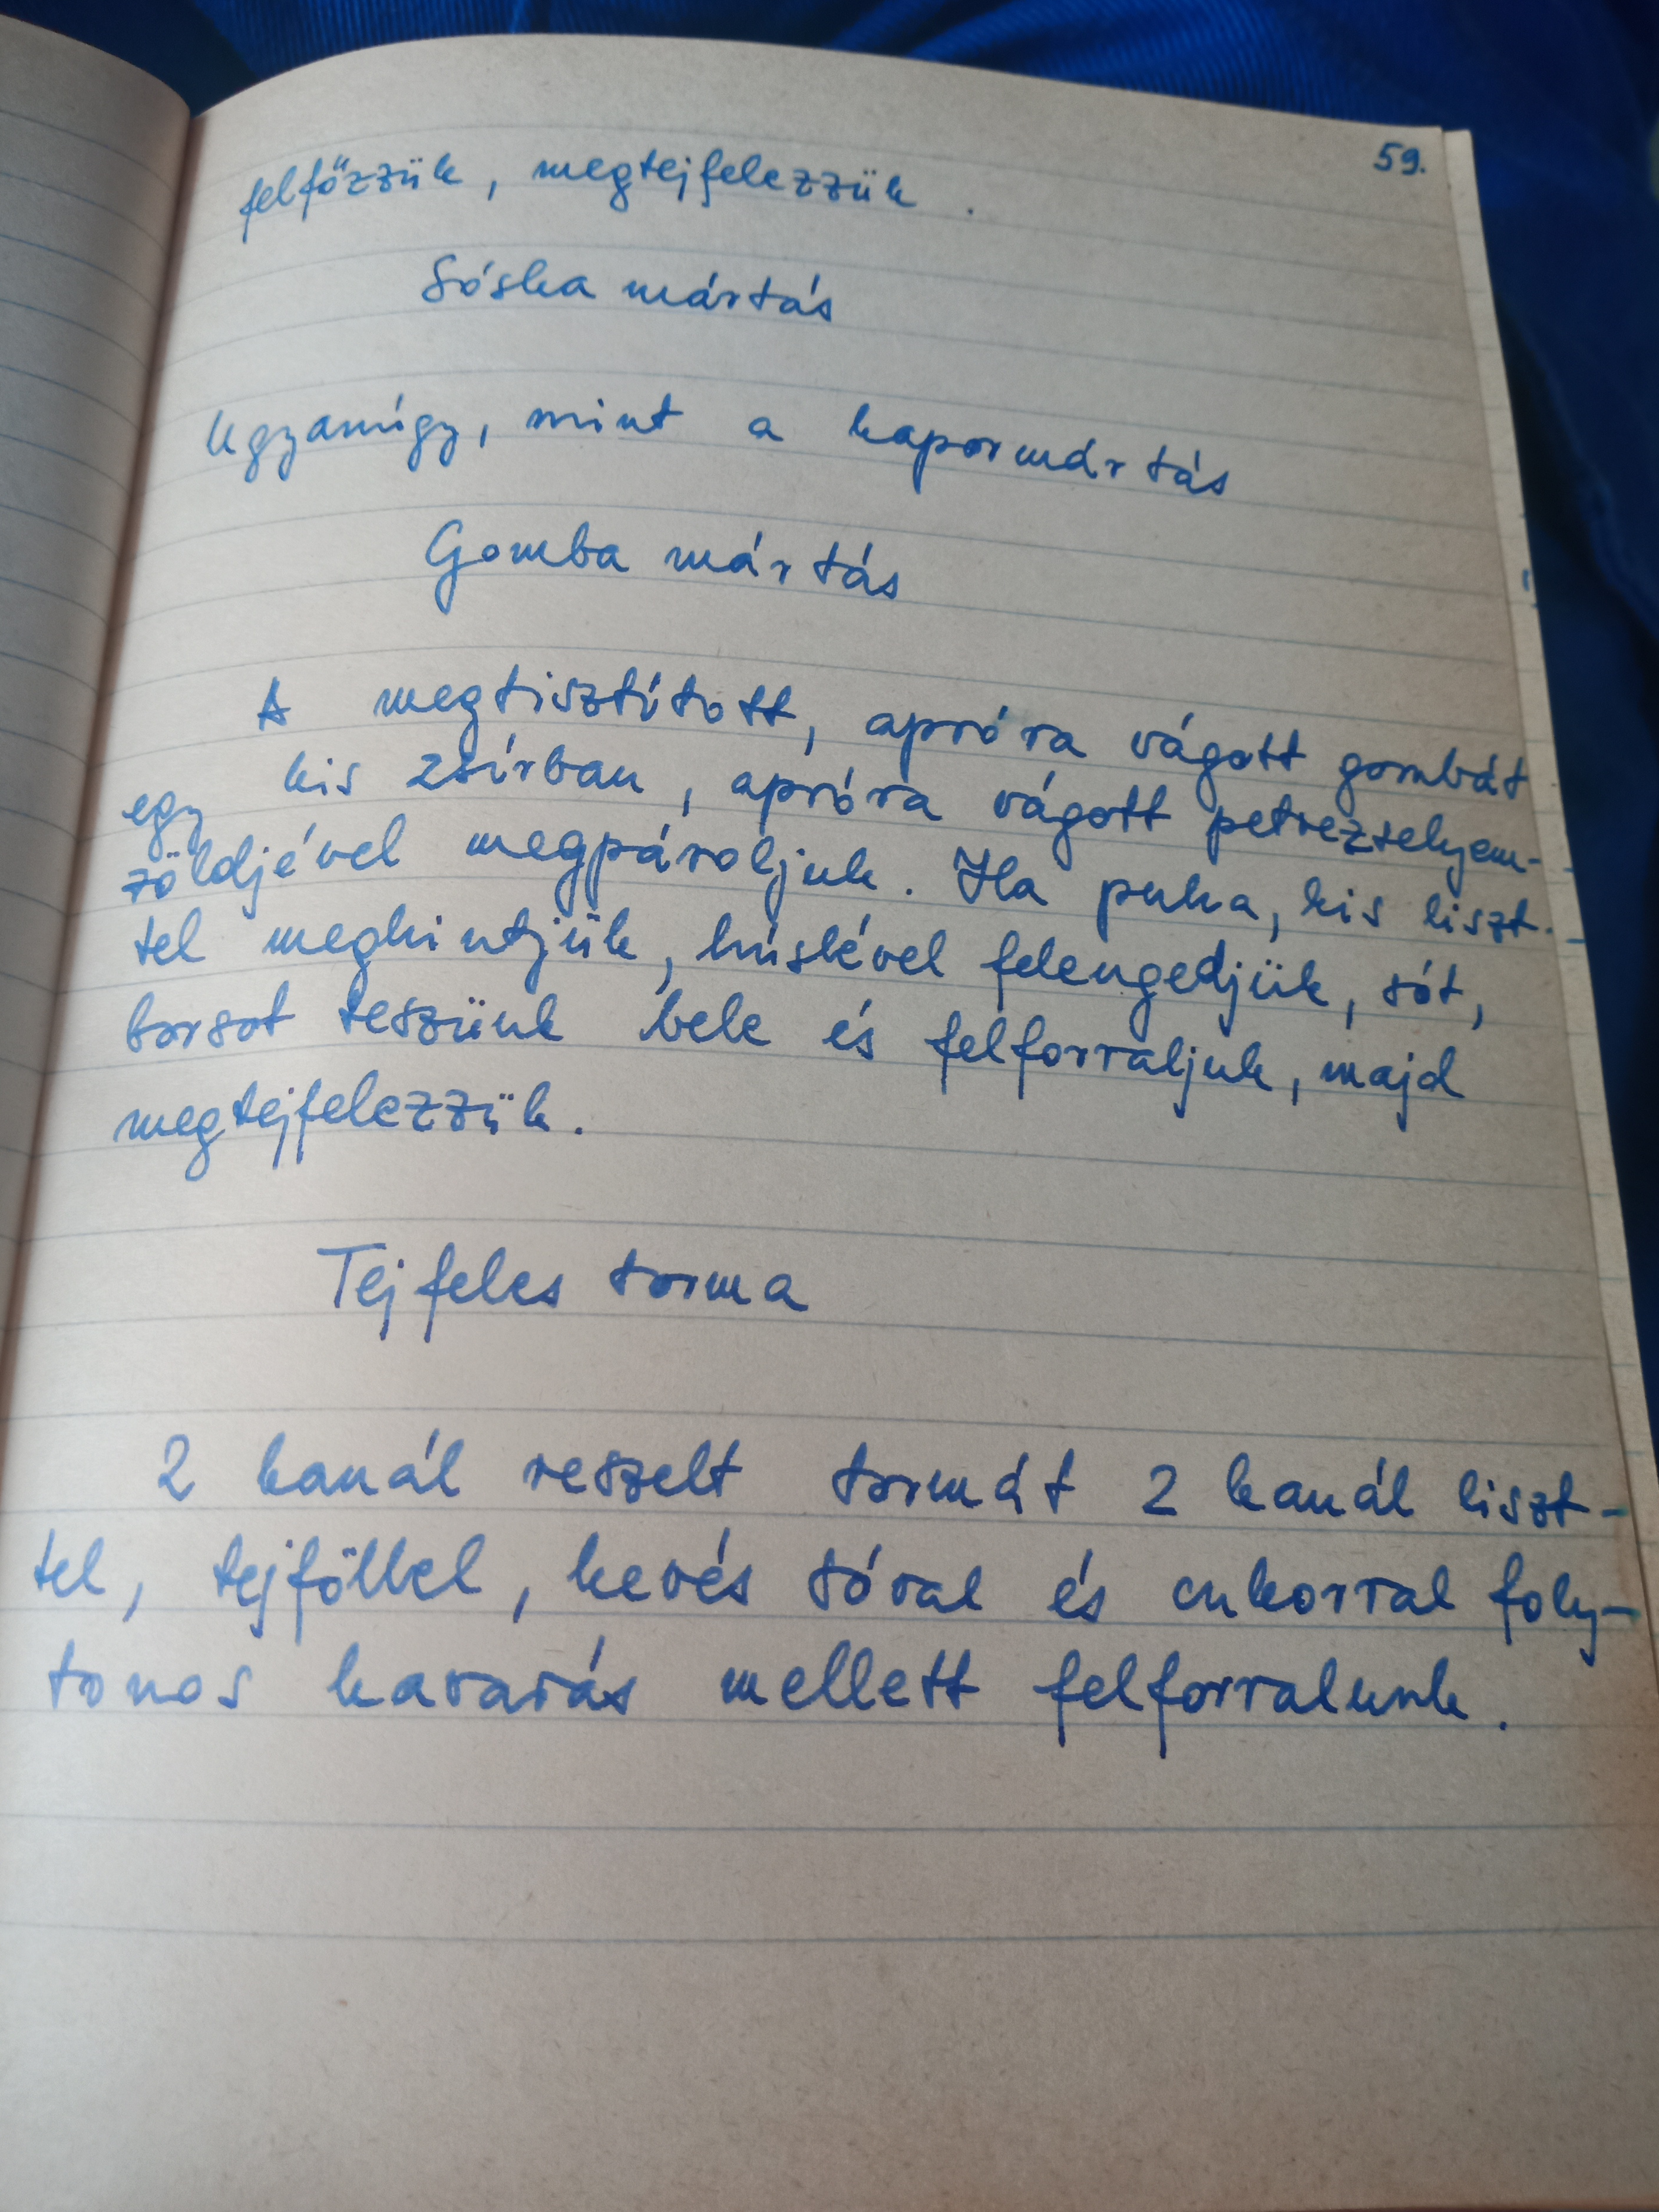 59.
felfőzzük, megtejfelezzük.
Sóska mártás
Ugyamígy, mint a kapormártás
Gomba mártás
A megtisztított, apróra vágott gombát
egy kis zsírban, apróra vágott petrezselyem-
zöldjével megpároljuk. Ha puha, kis liszt-
tel meghintjük, húslével felengedjük, sót,
borsot teszünk bele és felforraljuk, majd
megtejfelezzük.
Tejfeles torma
2 kanál reszelt tormát 2 kanál liszt-
tel, tejföllel, kevés sóval és cukorral foly-
tonos kavarás mellett felforralunk.